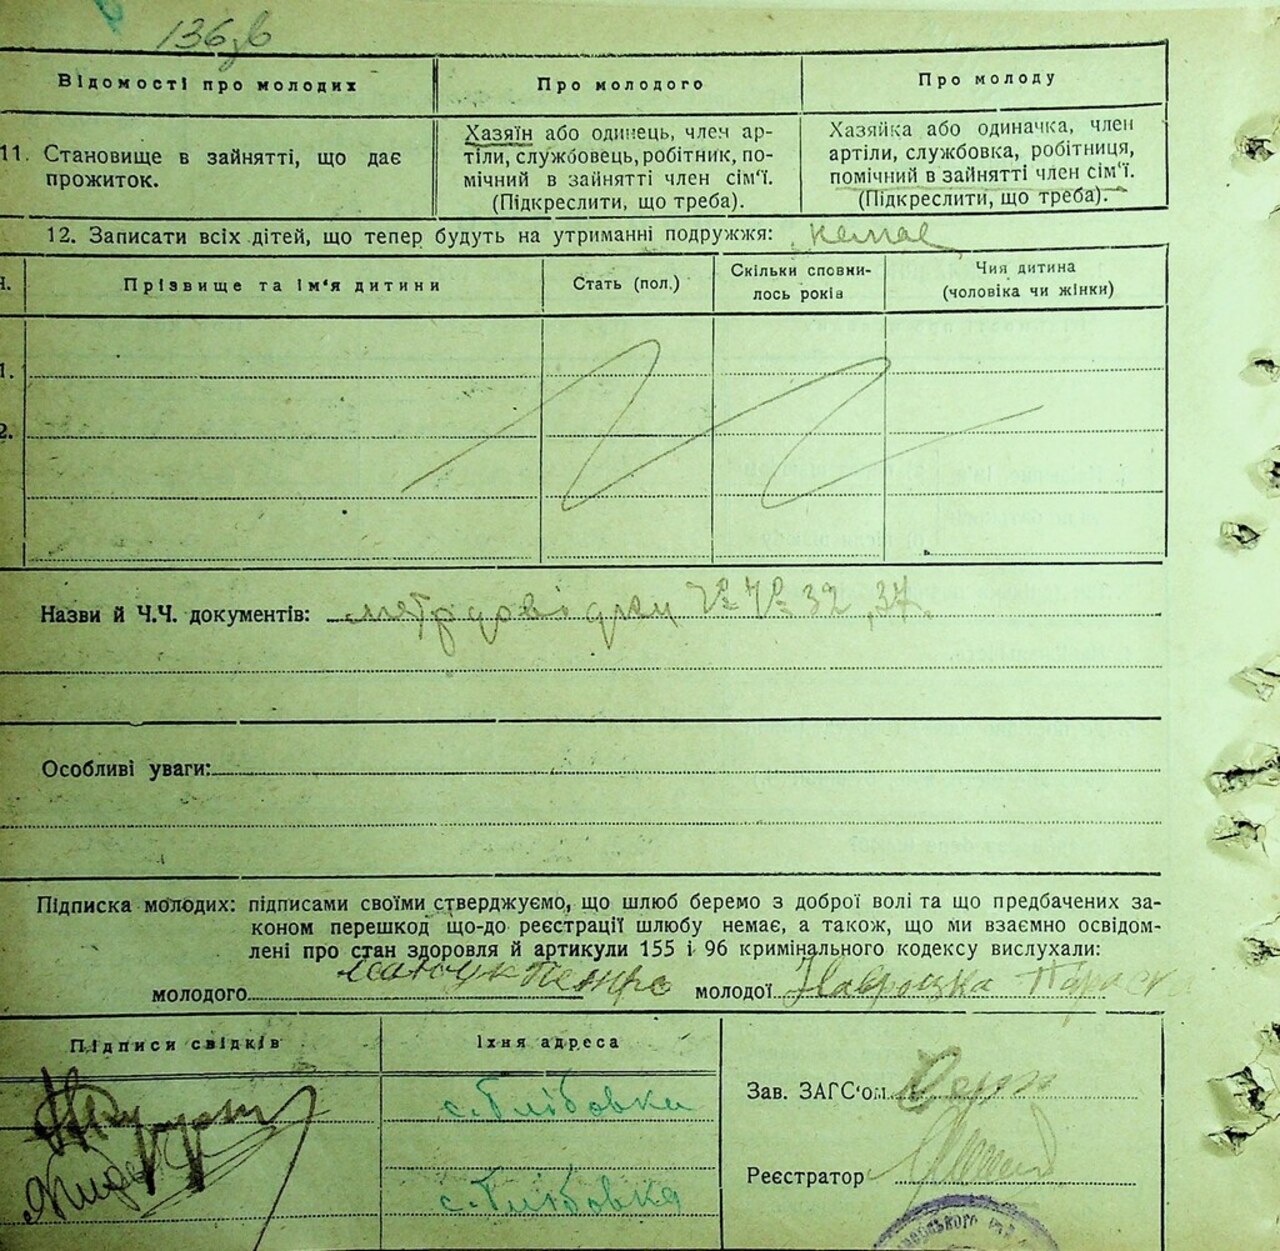 136зв
Відомості про молодих
Про молодого
Про молоду
11. Становище в зайнятті, що дає
прожиток.
Хазяїн або одинець, член ар-
тіли, службовець, робітник, по-
мічний в зайнятті член сім'ї.
(Підкреслити, що треба).
Хазяйка або одиначка, член
артіли, службовка, робітниця,
помічний в зайнятті член сім'ї.
(Підкреслити, що треба).
12. Записати всіх дітей, що тепер будуть на утриманні подружжя: немає
Ч.
Прізвище та ім'я дитини
Стать (пол.)
Скільки сповни-
лось років
Чия дитина
(чоловіка чи жінки)
1.
2.
Назви й Ч.Ч. документів: 32, 37.
Особливі уваги:
Підписка молодих: підписами своїми стверджуємо, що шлюб беремо з доброї волі та що предбачених за-
коном перешкод що-до реєстрації шлюбу немає, а також, що ми взаємно освідом-
лені про стан здоровля й артикули 155 і 96 кримінального кодексу вислухали:
молодого Петро молодої Навроцка Параска
Підписи свідків
Їхня адреса
с. Глібовка
с. Глібовка
Зав. ЗАГС'ом
Реєстратор